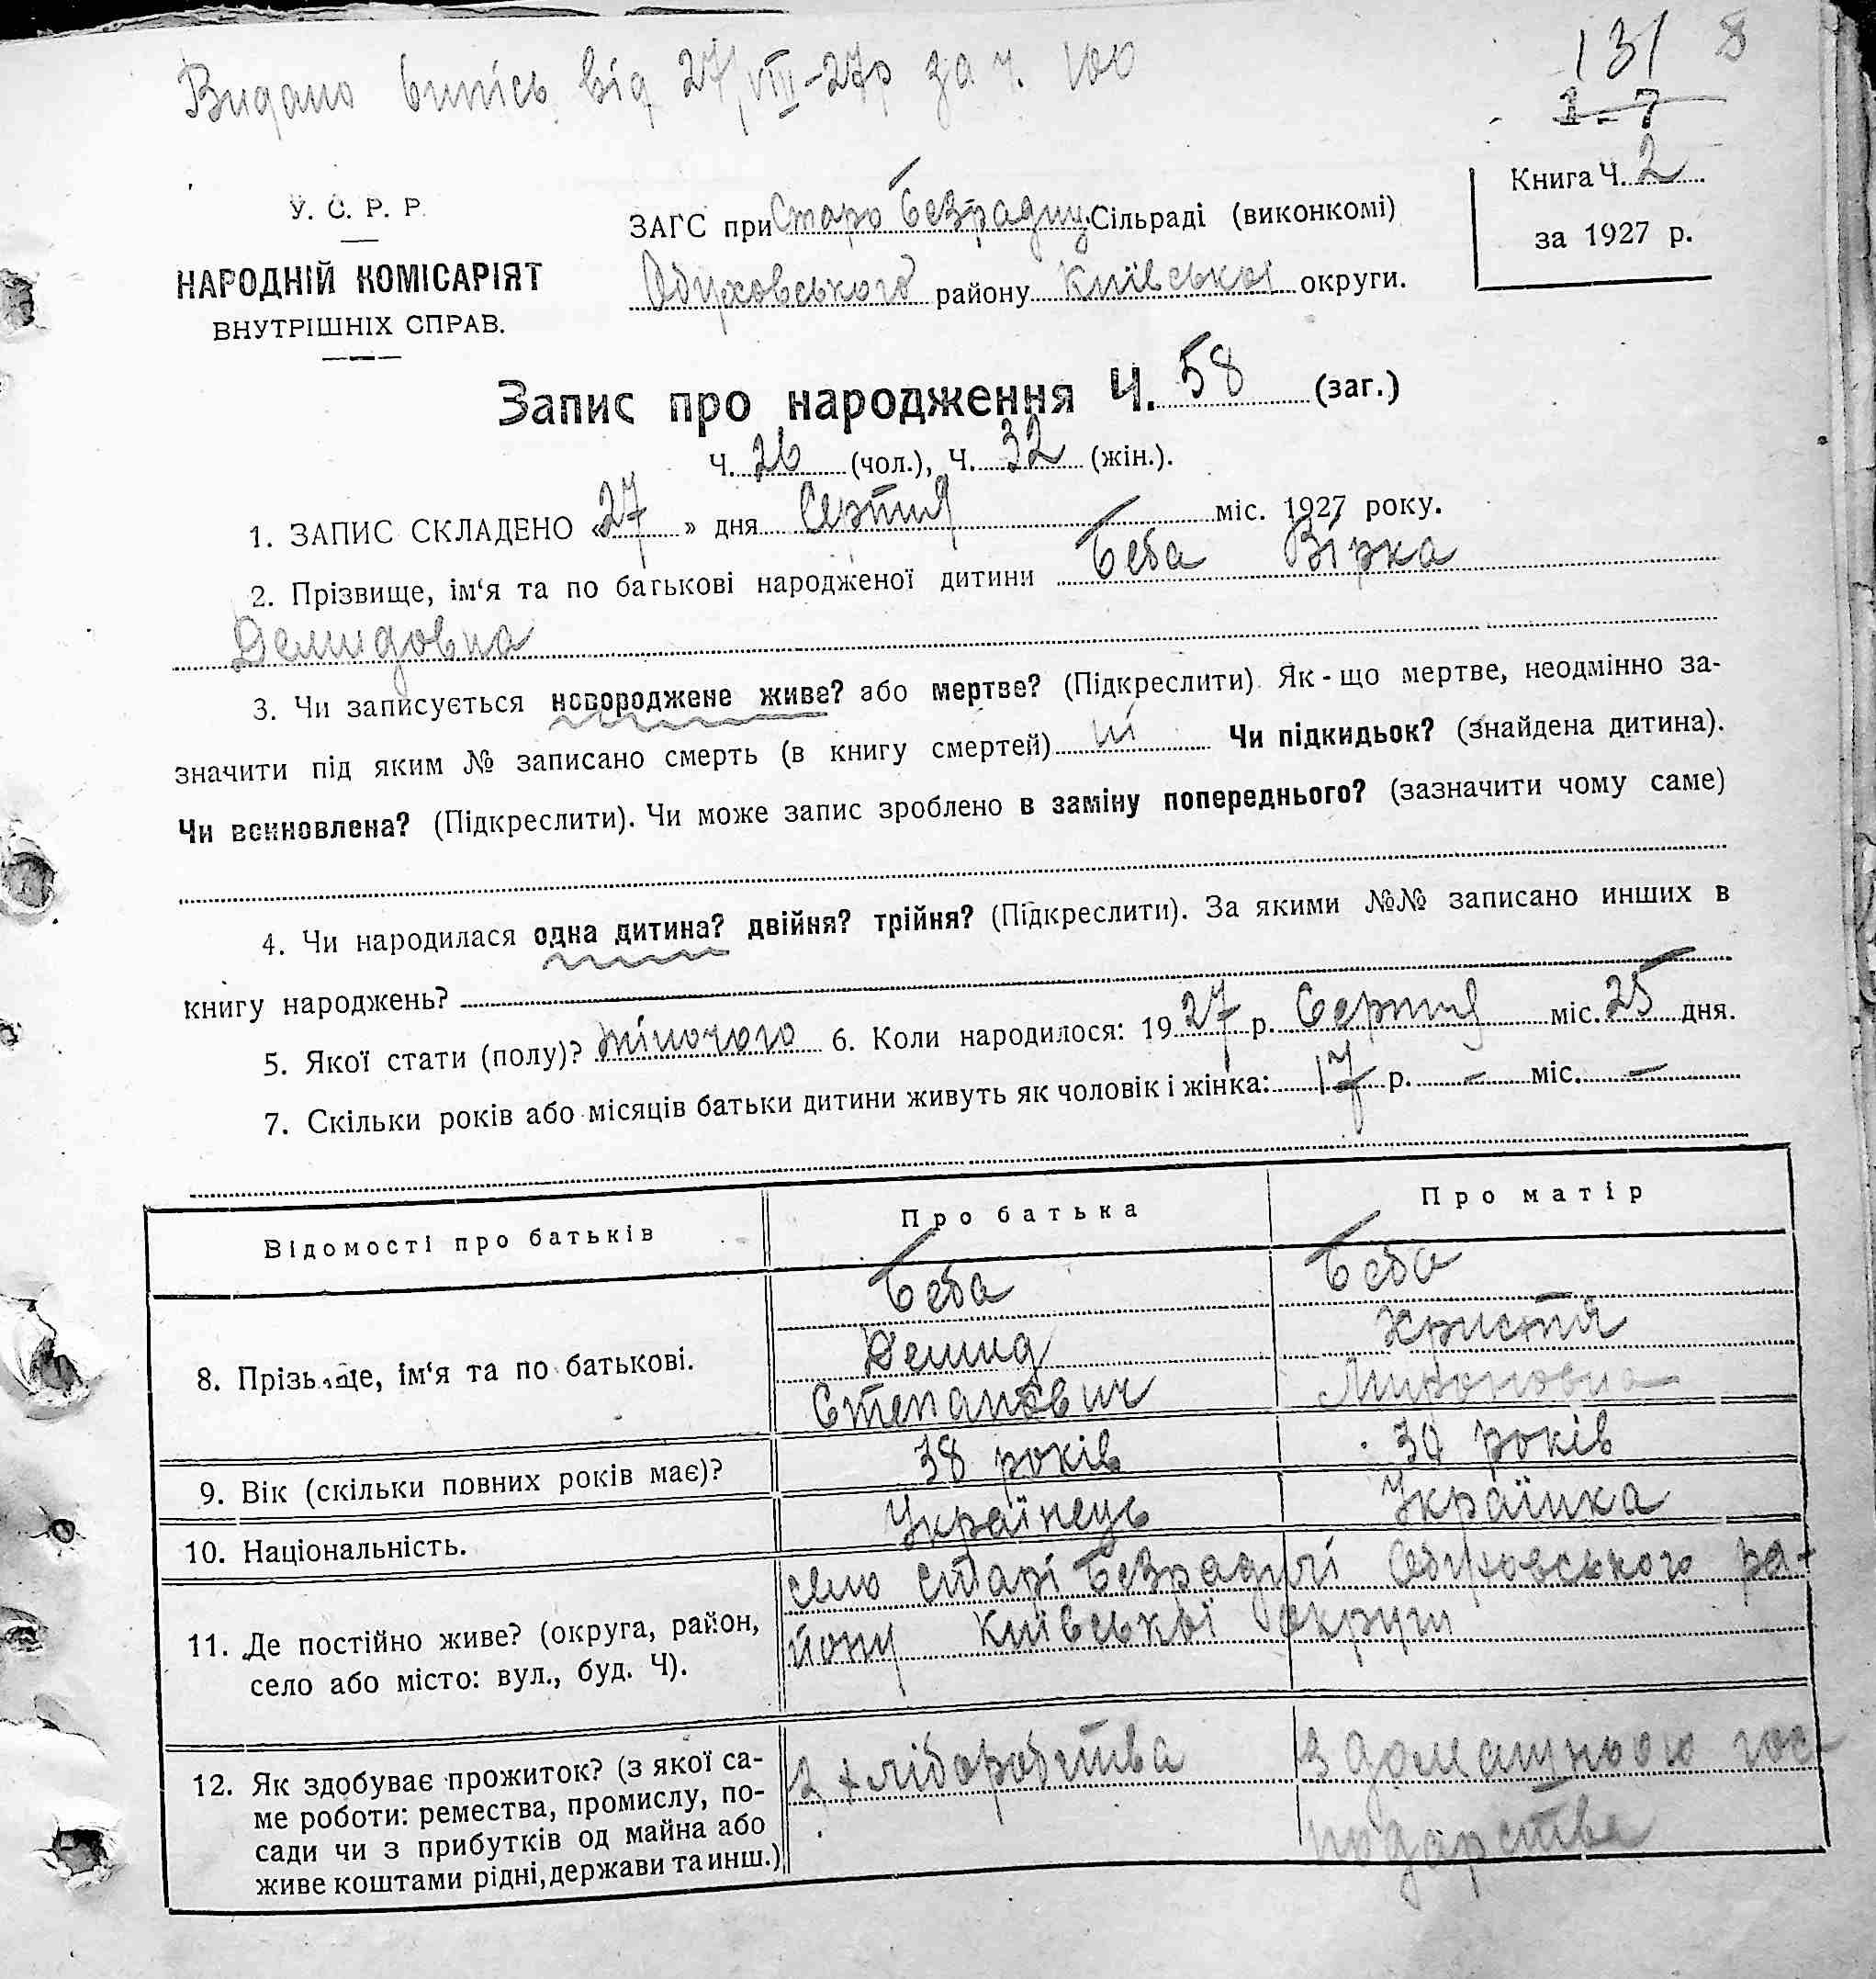 Видано випісь від 27/VIII-27р за ч. 100
131 8
1-7
У. С. Р. Р.
НАРОДНІЙ КОМІСАРІЯТ
ВНУТРІШНІХ СПРАВ.
ЗАГС при Старо Безрадиц. Сільраді (виконкомі)
Обуховського району Київської округи.
Книга Ч. 2
за 1927 р.
Запис про народження Ч. 58 (заг.)
Ч. 26 (чол.), Ч. 32 (жін.).
1. ЗАПИС СКЛАДЕНО «27» дня Серпня міс. 1927 року.
2. Прізвище, ім‘я та по батькові народженої дитини Беба Вірка
Демидовна
3. Чи записується новороджене живе? або мертве? (Підкреслити). Як-що мертве, неодмінно за-
значити під яким № записано смерть (в книгу смертей) ні Чи підкидьок? (знайдена дитина).
Чи всиновлена? (Підкреслити). Чи може запис зроблено в заміну попереднього? (зазначити чому саме)
4. Чи народилася одна дитина? двійня? трійня? (Підкреслити). За якими №№ записано инших в
книгу народжень?
5. Якої стати (полу)? жіночого 6. Коли народилося: 1927 р. Серпня міс. 25 дня.
7. Скільки років або місяців батьки дитини живуть як чоловік і жінка: 17 р. — міс. —
Відомості про батьків Про батька Про матір
8. Прізвище, ім‘я та по батькові. Беба Беба
Демид Христя
Степанович Мироновна
9. Вік (скільки повних років має)? 38 років років
10. Національність. Українець Українка
село Старі Безрадичі Обуховського ра-
йону Київської округи
11. Де постійно живе? (округа, район,
село або місто: вул., буд. Ч).
12. Як здобуває прожиток? (з якої са-
ме роботи: ремества, промислу, по-
сади чи з прибутків од майна або
живе коштами рідні, держави та инш.)
З хліборобства З домашнього гос-
подарства